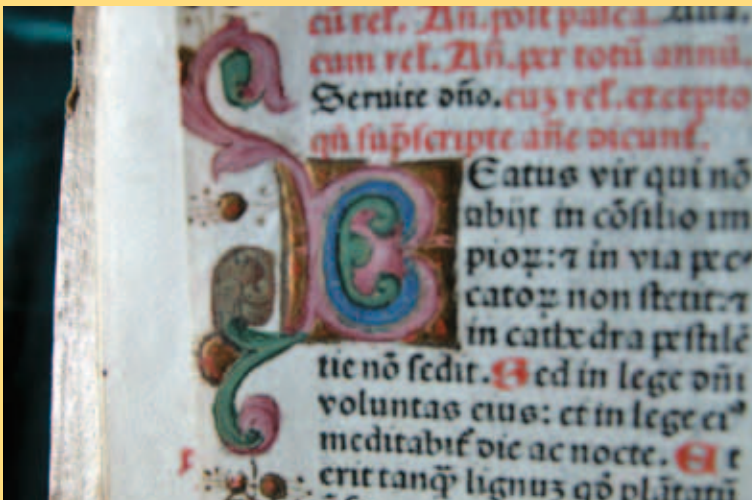 cū rel̃. Añ. post pasca. Alia.
cum rel̃. Añ. per totū annū.
Seruite dño. cuȝ rel̃. excepto
qđ sup̃scripte añe dicunt̃.
Beatus vir qui nō
abijt in cōsilio im
pioꝝ: ⁊ in via pec
catoꝝ non stetit: ⁊
in cathedra pestilē
tie nō sedit. Sed in lege dñi
voluntas eius: et in lege ei᷒
meditabit̃ die ac nocte. Et
erit tanq̃ lignuȝ qđ plātatū